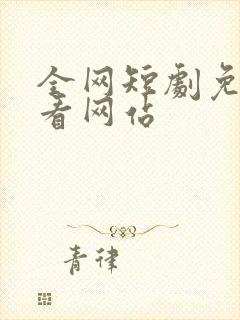 全网短劇免
看网站
青律